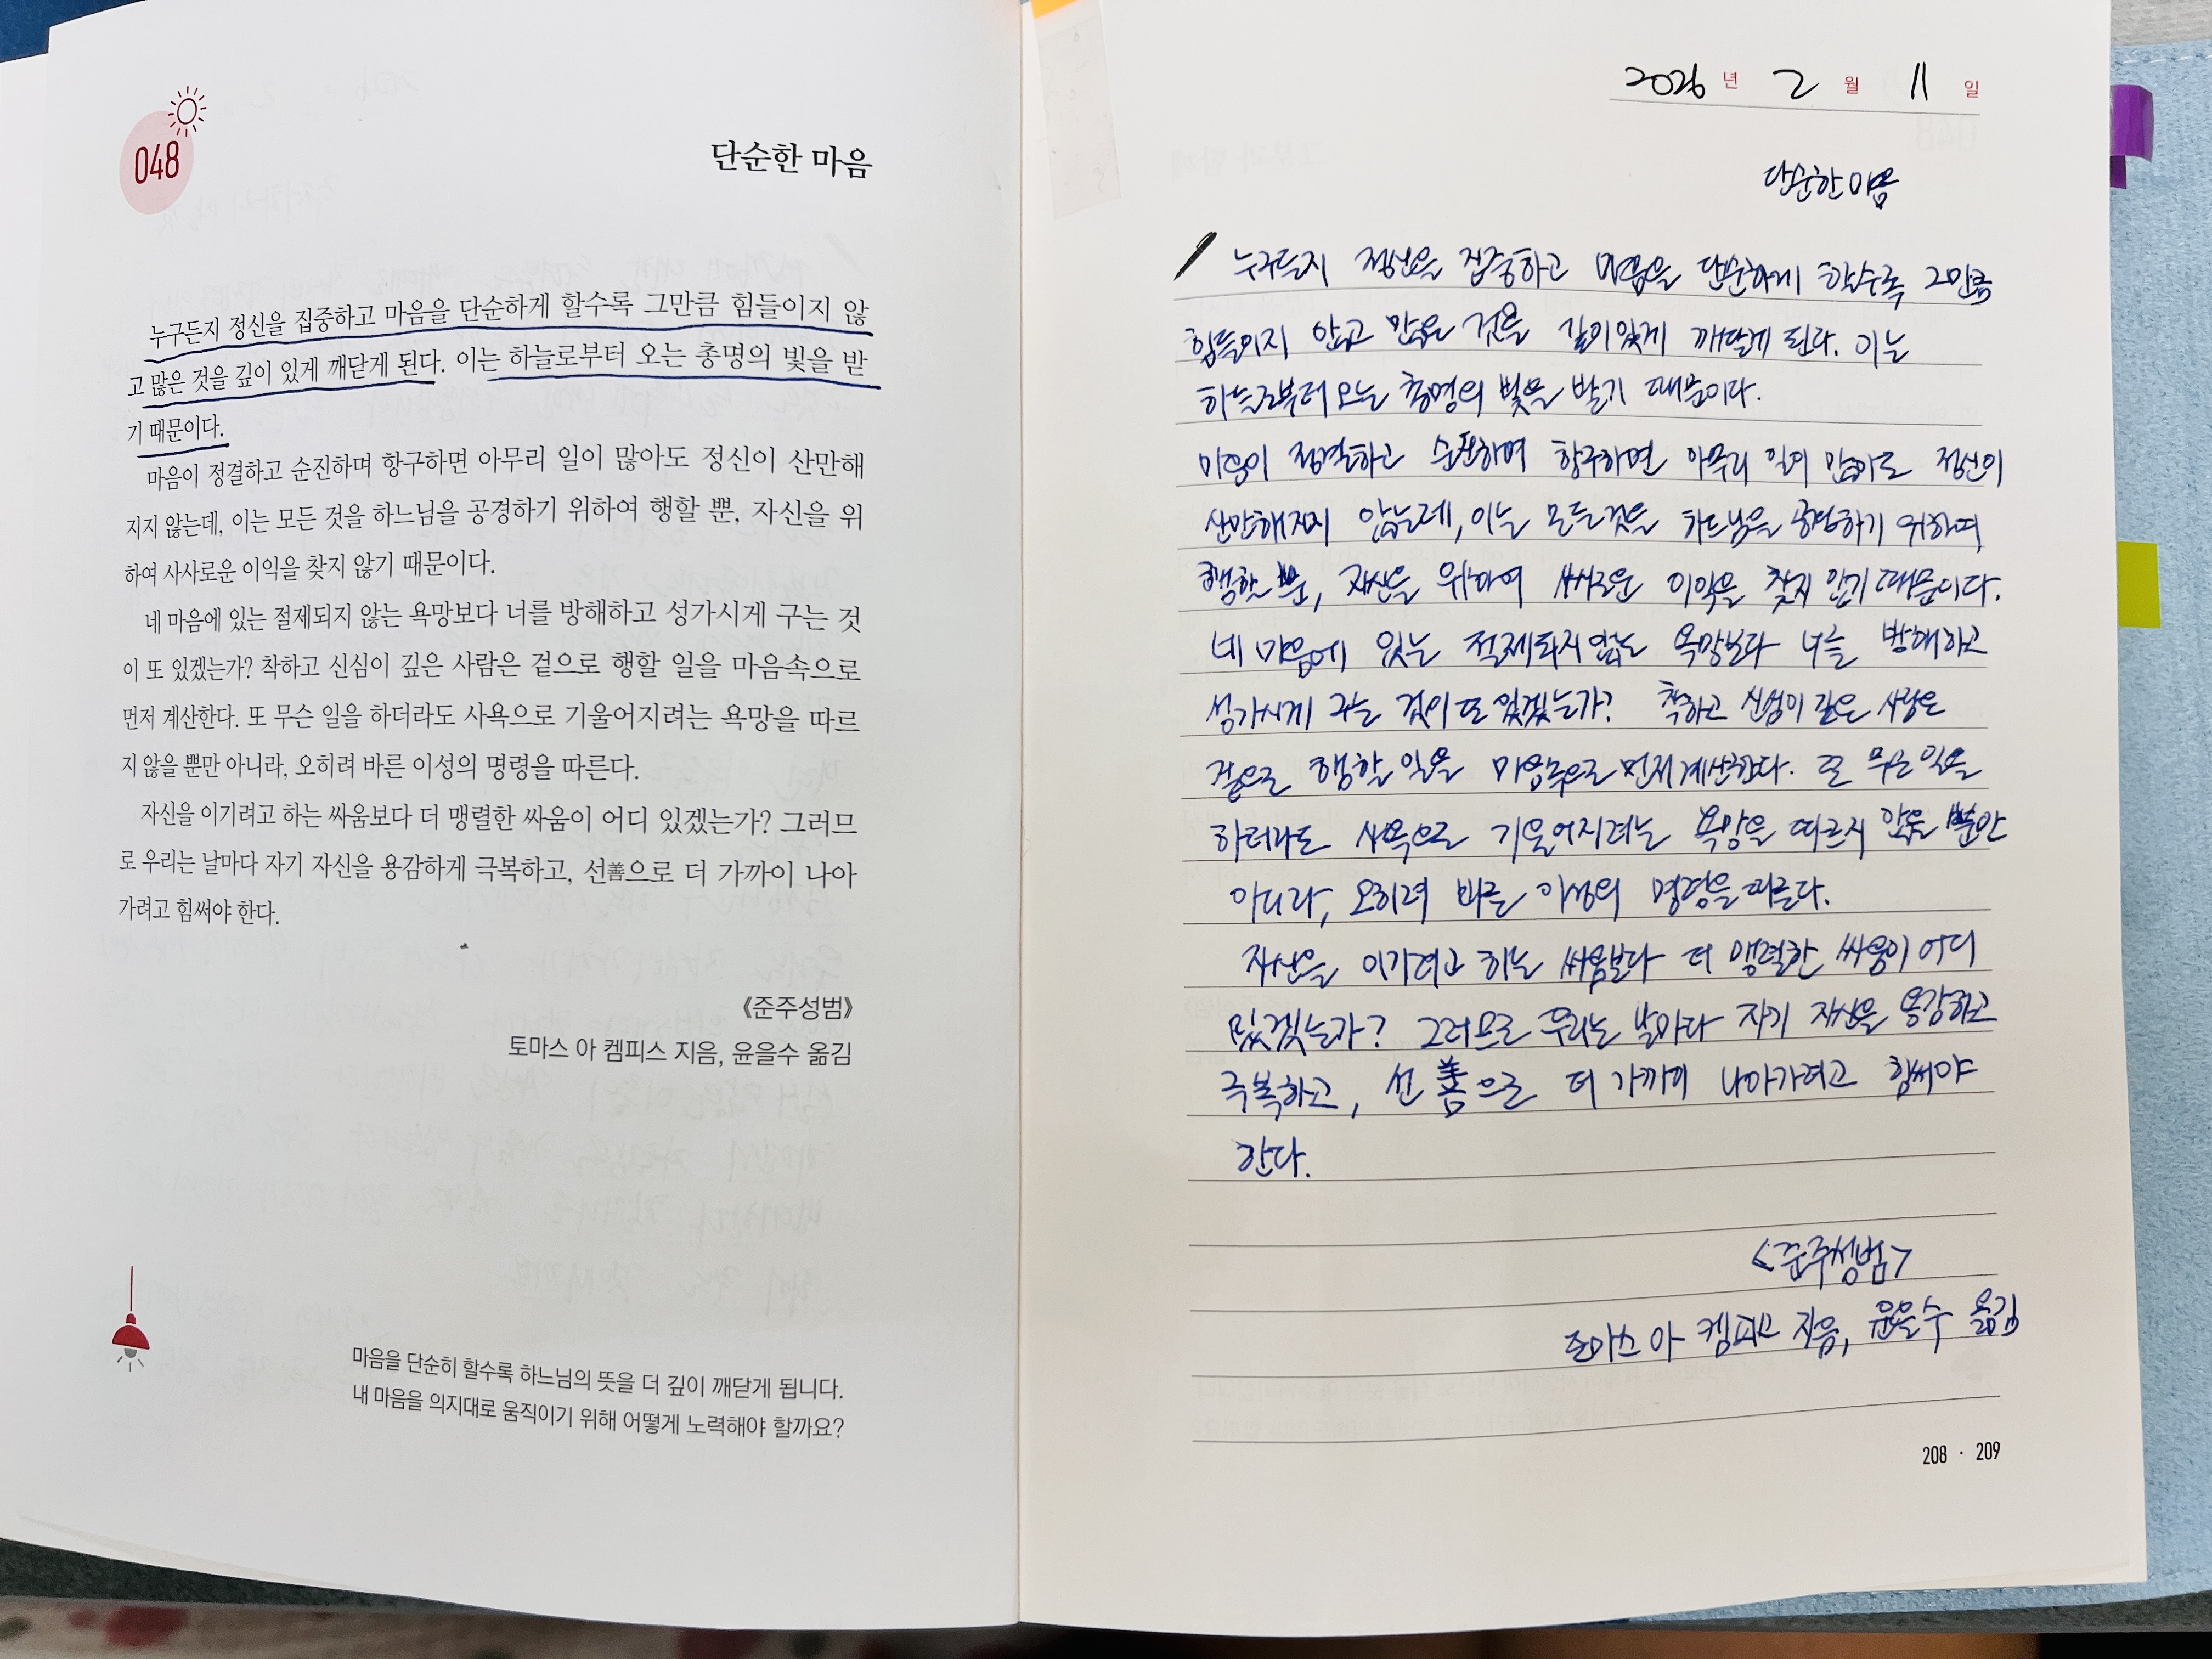 048
단순한 마음
누구든지 정신을 집중하고 마음을 단순하게 할수록 그만큼 힘들이지 않
고 많은 것을 깊이 있게 깨닫게 된다. 이는 하늘로부터 오는 총명의 빛을 받
기 때문이다.
마음이 정결하고 순진하며 항구하면 아무리 일이 많아도 정신이 산만해
지지 않는데, 이는 모든 것을 하느님을 공경하기 위하여 행할 뿐, 자신을 위
하여 사사로운 이익을 찾지 않기 때문이다.
네 마음에 있는 절제되지 않는 욕망보다 너를 방해하고 성가시게 구는 것
이 또 있겠는가? 착하고 신심이 깊은 사람은 겉으로 행할 일을 마음속으로
먼저 계산한다. 또 무슨 일을 하더라도 사욕으로 기울어지려는 욕망을 따르
지 않을 뿐만 아니라, 오히려 바른 이성의 명령을 따른다.
자신을 이기려고 하는 싸움보다 더 맹렬한 싸움이 어디 있겠는가? 그러므
로 우리는 날마다 자기 자신을 용감하게 극복하고, 선善으로 더 가까이 나아
가려고 힘써야 한다.
《준주성범》
토마스 아 켐피스 지음, 윤을수 옮김
마음을 단순히 할수록 하느님의 뜻을 더 깊이 깨닫게 됩니다.
내 마음을 의지대로 움직이기 위해 어떻게 노력해야 할까요?
2026 년 2 월 11 일
단순한 마음
누구든지 정신을 집중하고 마음을 단순하게 할수록 그만큼
힘들이지 않고 많은 것을 깊이있게 깨닫게 된다. 이는
하늘로부터 오는 총명의 빛을 받기 때문이다.
마음이 정결하고 순진하며 항구하면 아무리 일이 많아도 정신이
산만해지지 않는데, 이는 모든것을 하느님을 공경하기 위하여
행할 뿐, 자신을 위하여 이익을 찾지 않기 때문이다.
네 마음에 있는 절제되지 않는 욕망보다 너를 방해하고
성가시게 구는 것이 또 있겠는가? 착하고 신심이 깊은 사람은
겉으로 행할 일을 마음속으로 먼저 계산한다. 또 무슨 일을
하더라도 사욕으로 기울어지려는 욕망을 따르지 않을 뿐만
아니라, 오히려 바른 이성의 명령을 따른다.
자신을 이기려고 하는 싸움보다 더 맹렬한 싸움이 어디
있겠는가? 그러므로 우리는 날마다 자기 자신을 용감하고
극복하고, 선 善으로 더 가까이 나아가려고 힘써야
한다.
<준주성범>
토마스 아 지음, 윤을수 옮김
208 · 209